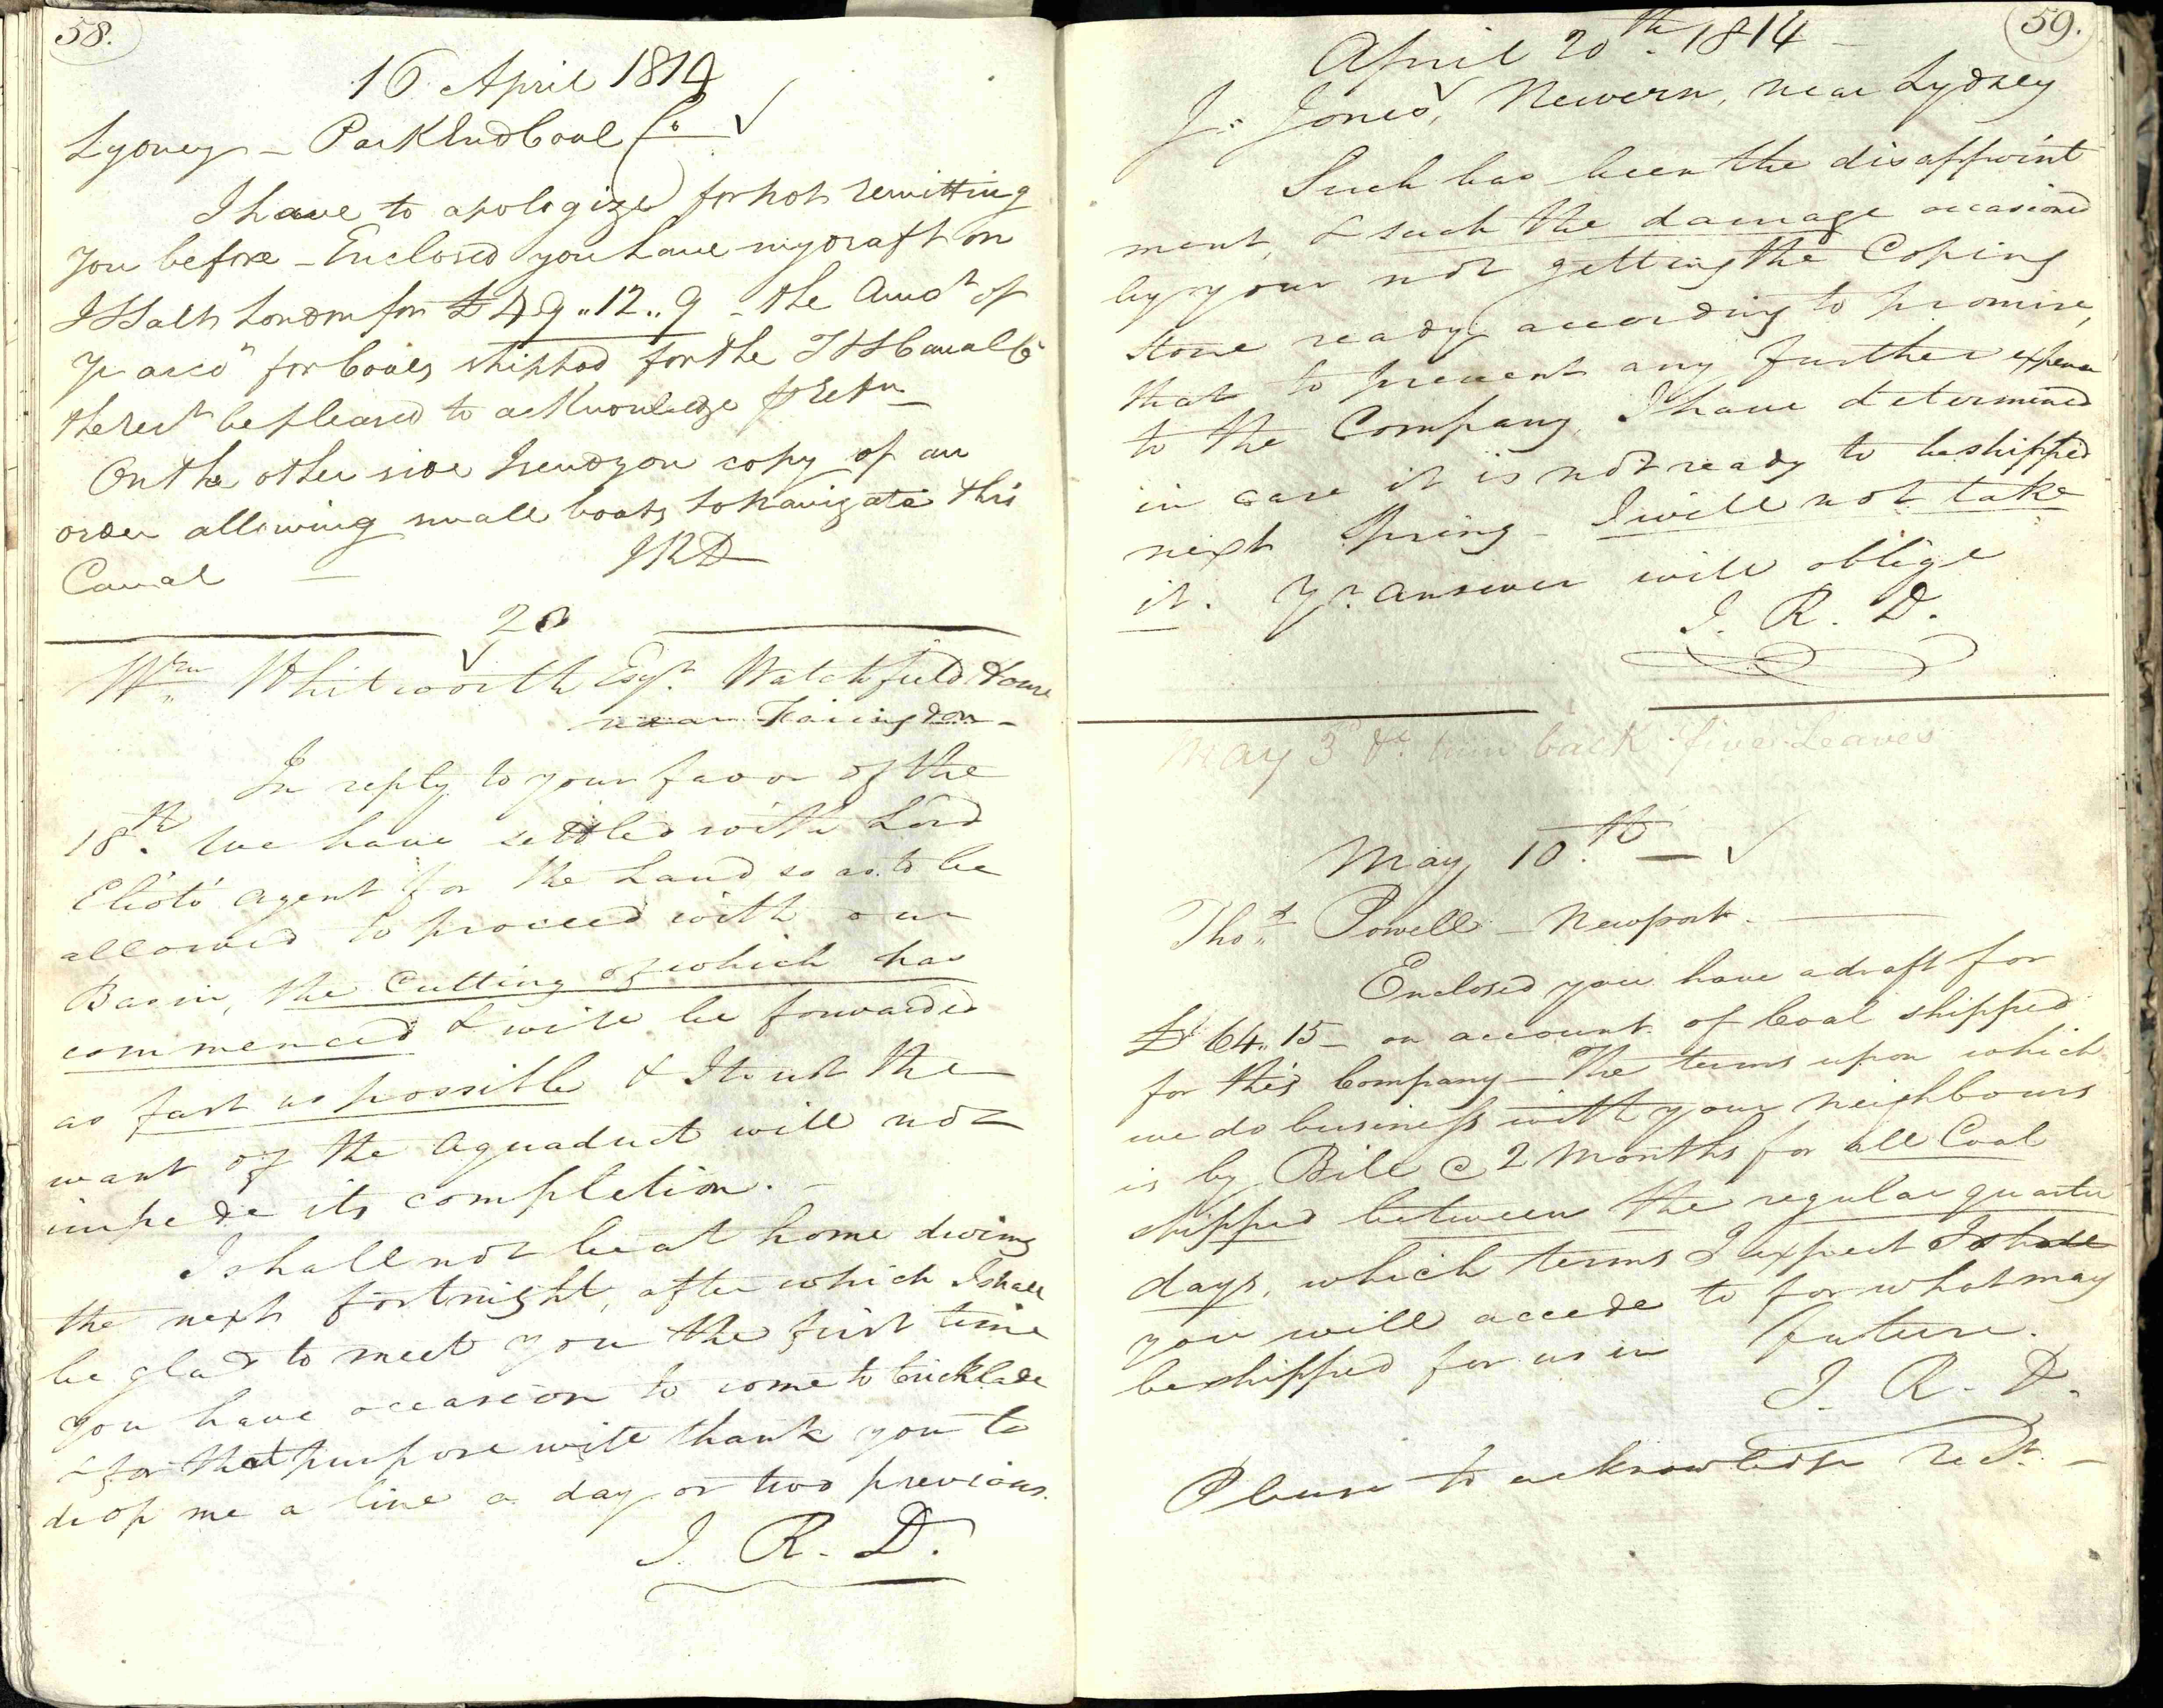 58.
16 April 1814
Lydney - Park End Coal Co
I have to apologize for not remitting
you before - Enclosed you have my draft on
J Hall London for £49..12..9 - the Amot of
yr acco for Coals shipped for the Canal Co
the rect be pleased to acknowledge p retn
On the other side I send you copy of an
order allowing small boats to navigate this
Canal - JRD
20
Wm Whitworth Esqr. Watchfield House
near Faringdon -
In reply to your favor of the
18th. We have settled with Lord
Eliots agent for the Land so as to be
allowed to proceed with our
Basin, the Cutting of which has
commenced & will be forwarded
as fast as possible & I trust the
want of the Aquaduct will not
impede its completion. -
I shall not be at home during
the next fortnight, after which I shall
be glad to meet you the first time
you have occasion to come to Cricklade
& for that purpose will thank you to
drop me a line a day or two previous.
J. R. D.
59.
April 20th. 1814 -
J: Jones, Newern, near Lydney
Such has been the disappoint
ment, & such the damage occasioned
by your not getting the Coping
stone ready according to promise,
that to prevent any further expence
to the Company, I have determined
in case it is not ready to be shipped
next Spring - I will not take
it. Yr. answer will oblige
J. R. D.
May 3d &c turn back five Leaves
May 10.th -
Thos. Powell - Newport. -
Enclosed you have a draft for
£64.. 15 - on account of Coal shipped
for this Company - The terms upon which
we do business with your neighbours
is by Bill @ 2 Months for all Coal
shipped between the regular quarter
days, which terms I expect I shall
you will accede to for what may
be shipped for us in future.
J. R. D.
Please to acknowledge rect. -